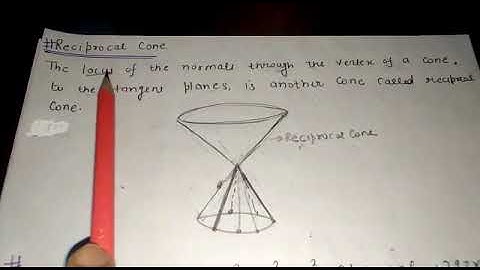 #Reciprocal Cone
The locus of the normals through the vertex of a cone,
to the tangent planes, is another cone called reciprocal
Cone.
Reciprocal Cone
#